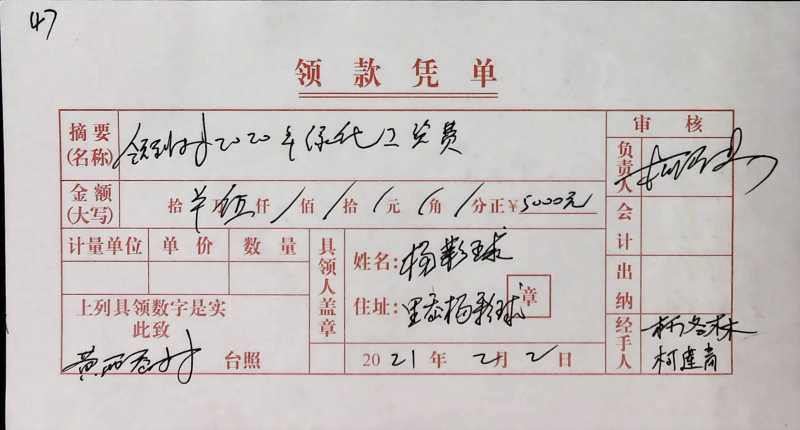 47
领款凭单
摘要
(名称)
领到村2020年绿化工资费
审核
负责人
金额
(大写)
拾 万伍仟/佰/拾/元/角/分正¥5000元
会计
计量单位 单价 数量
具领人盖章
姓名:杨彩球
住址:里岙杨彩球
章
出纳
上列具领数字是实
此致
台照
2021年2月2日
经手人
柯冬林
柯建尚